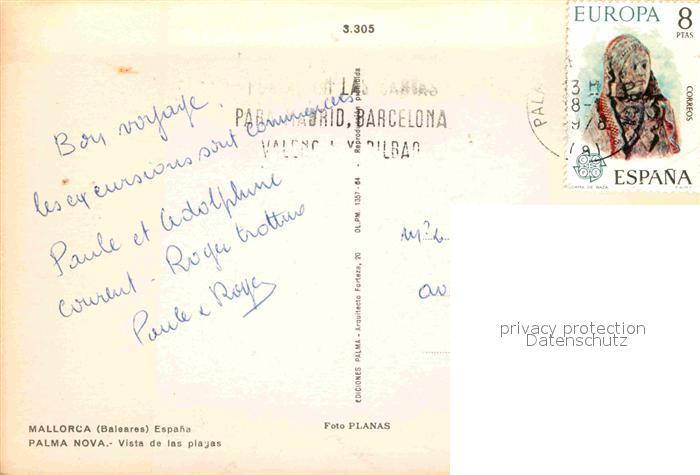 3.305
EUROPA 8
PTAS
CORREOS
ESPAÑA
DAMA DE BAZA
F.N.M.T.
PALMA
EN LAS CARTAS
PARA MADRID, BARCELONA
VALENCIA Y BILBAO
Bon voyage.
les excursions sont commencées
Paule et Adolphine
courent - Roger trottine
Paule & Roger
EDICIONES PALMA - Arquitecto Forteza, 20 DL.PM. 1357-64 - Reproducción prohibida
MALLORCA (Baleares) España
PALMA NOVA.- Vista de las playas
Foto PLANAS
privacy protection
Datenschutz